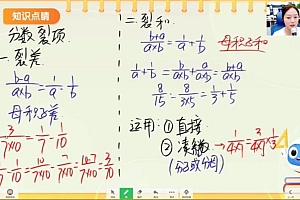 知识点睛
分数裂项
一.裂差
b-a/a×b = 1/a - 1/b
母积子差
3/7×10 = 1/7 - 1/10
1/7 - 1/10 = 10/7×10 - 7/7×10 = 10-7/7×10 = 3/70
二.裂和
b+a/a×b = 1/a + 1/b
母积子和
1/a + 1/b = b/a×b + a/a×b = b+a/a×b
8/15 = 8/3×5 = 1/3 + 1/5
运用:①直接
②凑